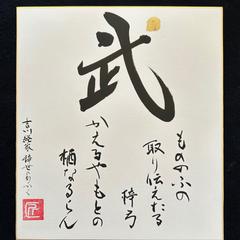 武
もののふの
取り伝えたる
梓弓
かえるやもとの
栖なるらん
吉川経家 辞世
匠